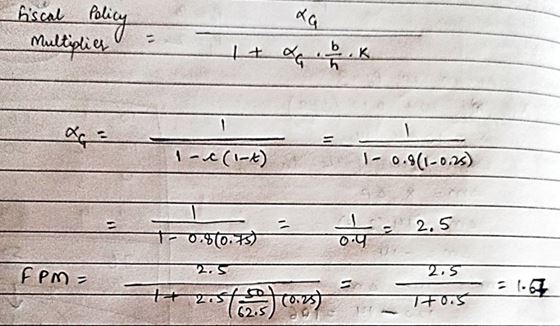 Fiscal Policy Multiplier = αG / (1 + αG · b/h · K)
αG = 1 / (1 - c(1-t)) = 1 / (1 - 0.8(1-0.25))
= 1 / (1 - 0.8(0.75)) = 1 / 0.4 = 2.5
FPM = 2.5 / (1 + 2.5(50/62.5)(0.25)) = 2.5 / (1+0.5) = 1.67